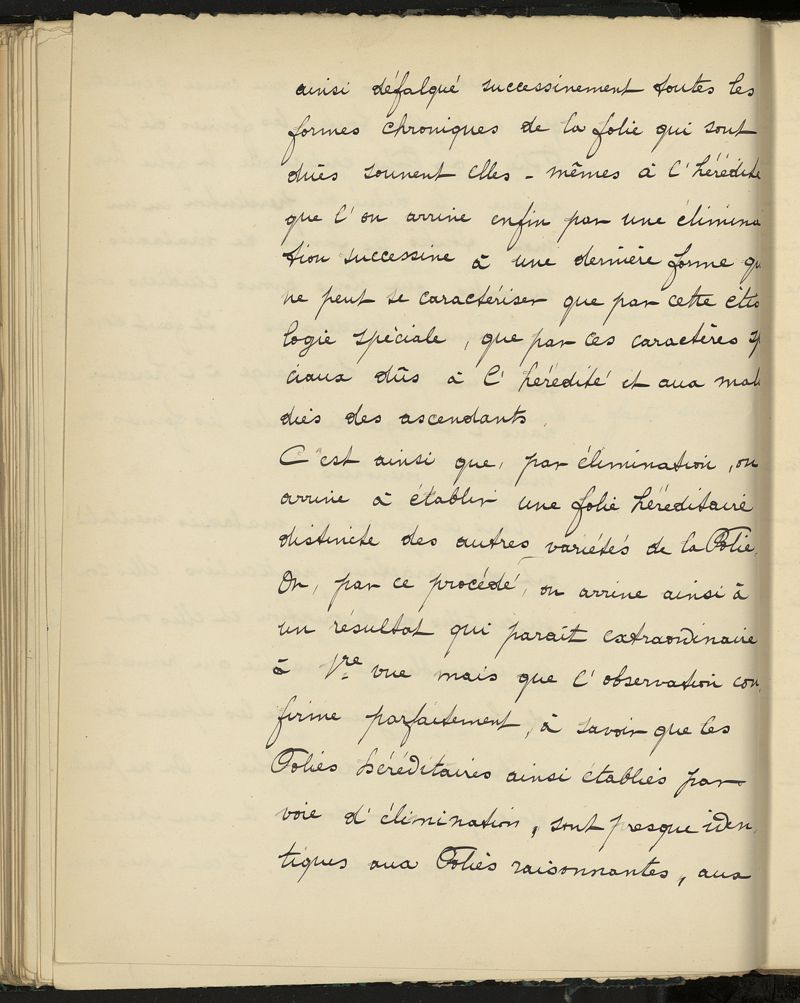 ainsi défalqué successivement toutes les
formes chroniques de la folie qui sont
dûes souvent elles-mêmes à l'hérédité
que l'on arrive enfin par une élimina
tion successive à une dernière forme qu
ne peut se caractériser que par cette étio
logie spéciale, que par ces caractères sp
ciaux dûs à l'hérédité et aux mala
dies des ascendants.
C'est ainsi que, par élimination, on
arrive à établir une folie héréditaire
distincte des autres variétés de la Folie.
Or, par ce procédé, on arrive ainsi à
un résultat qui parait extraordinaire
à 1re vue mais que l'observation con
firme parfaitement, à savoir que les
Folies héréditaires ainsi établies par
voie d'élimination, sont presque iden
tiques aux Folies raisonnantes, aux